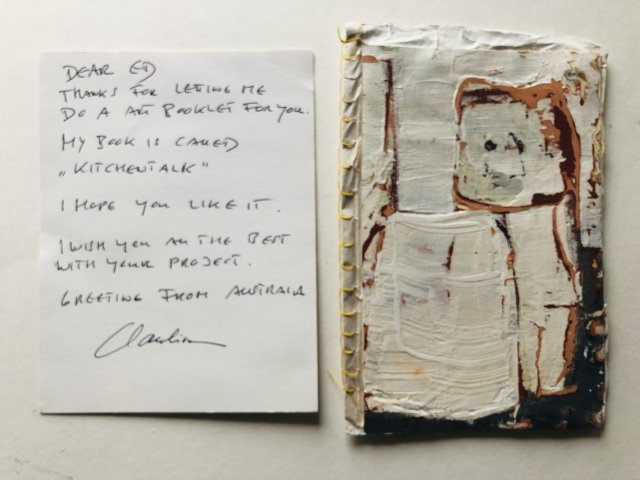 DEAR ED
THANKS FOR LETING ME
DO A ART BOOKLET FOR YOU.
MY BOOK IS CALLED
„KITCHENTALK"
I HOPE YOU LIKE IT.
I WISH YOU ALL THE BEST
WITH YOUR PROJECT.
GREETING FROM AUSTRALIA